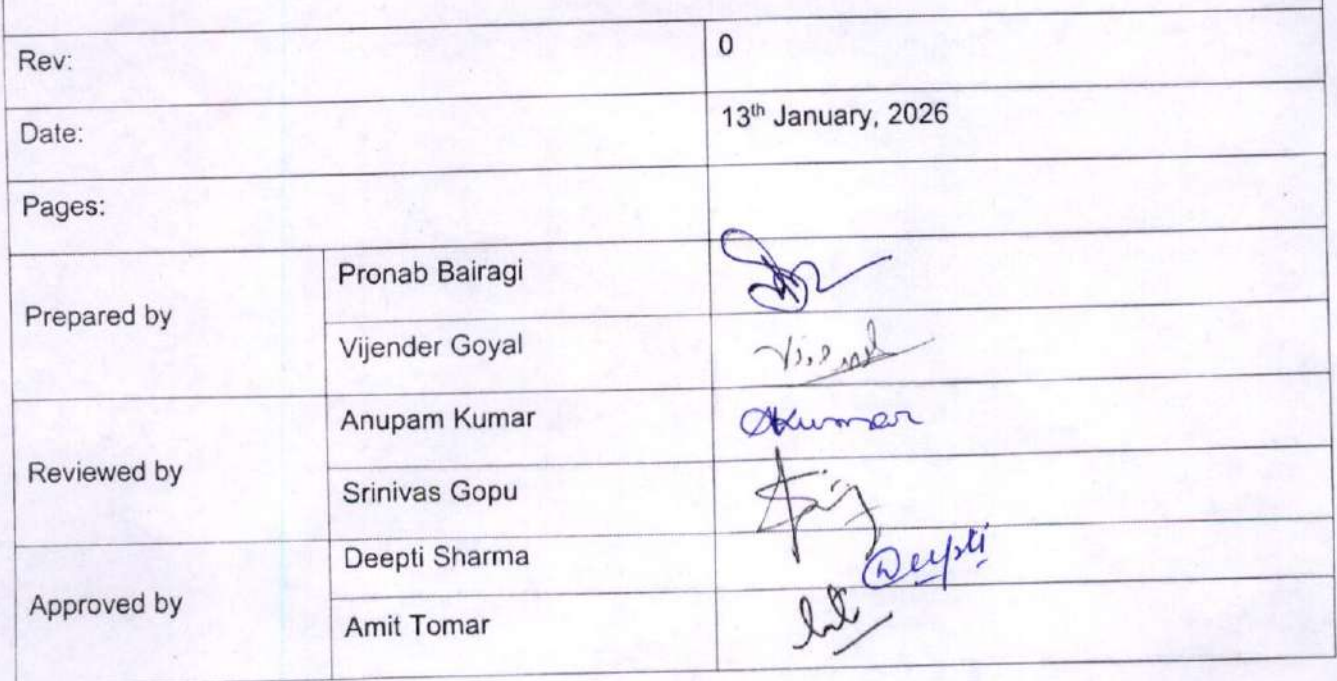 Rev: 0
Date: 13th January, 2026
Pages:
Prepared by
Pronab Bairagi
Vijender Goyal
Reviewed by
Anupam Kumar AKumar
Srinivas Gopu
Approved by
Deepti Sharma Deepti
Amit Tomar